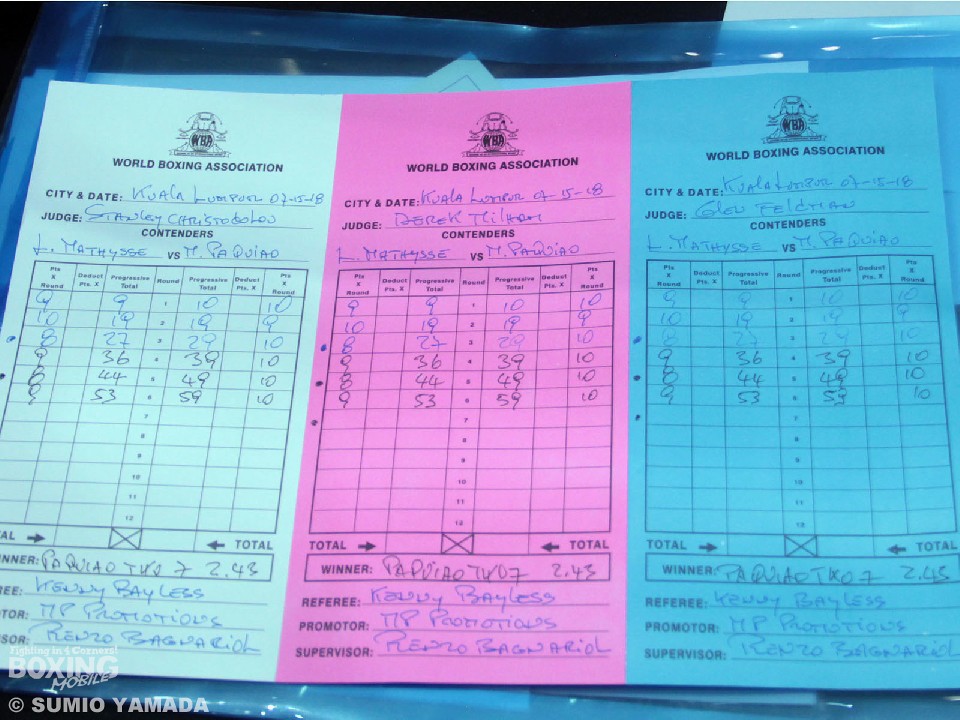 WBA
WORLD BOXING ASSOCIATION
CITY & DATE: KUALA LUMPUR 07-15-18
JUDGE: STANLEY CHRISTODOLOU
CONTENDERS
L. MATHYSSE VS M. PAQUIAO
Pts X Round Deduct Pts. X Progressive Total Round Progressive Total Deduct Pts. X Pts X Round
9 9 1 10 10
10 19 2 19 9
8 27 3 29 10
9 36 4 39 10
8 44 5 49 10
9 53 6 59 10
7
8
9
10
11
12
TAL TOTAL
INNER: PAQUIAO TKO 7 2.43
REE: KENNY BAYLESS
OTOR: MP PROMOTIONS
SOR: RENZO BAGNARIOL
WBA
WORLD BOXING ASSOCIATION
CITY & DATE: KUALA LUMPUR 07-15-18
JUDGE: DEREK MILHAM
CONTENDERS
L. MATHYSSE VS M. PAQUIAO
Pts X Round Deduct Pts. X Progressive Total Round Progressive Total Deduct Pts. X Pts X Round
9 9 1 10 10
10 19 2 19 9
8 27 3 29 10
9 36 4 39 10
8 44 5 49 10
9 53 6 59 10
7
8
9
10
11
12
TOTAL TOTAL
WINNER: PAPUIAO TKO 7 2.43
REFEREE: KENNY BAYLESS
PROMOTOR: MP PROMOTIONS
SUPERVISOR: RENZO BAGNARIOL
WBA
WORLD BOXING ASSOCIATION
CITY & DATE: KUALA LUMPUR 07-15-18
JUDGE: GLEN FELDMAN
CONTENDERS
L. MATHYSSE VS M. PAQUIAO
Pts X Round Deduct Pts. X Progressive Total Round Progressive Total Deduct Pts. X Pts X Round
9 9 1 10 10
10 19 2 19 9
8 27 3 29 10
9 36 4 39 10
8 44 5 49 10
9 53 6 59 10
7
8
9
10
11
12
TOTAL TOTAL
WINNER: PAQUIAO TKO 7 2.43
REFEREE: KENNY BAYLESS
PROMOTOR: MP PROMOTIONS
SUPERVISOR: RENZO BAGNARIOL
Fighting in 4 Corners!
BOXING
MOBILES
© SUMIO YAMADA